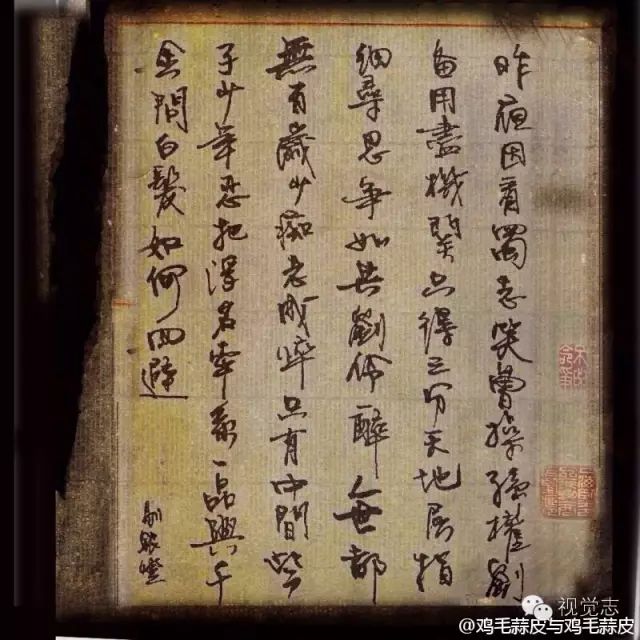 昨夜因看蜀志笑曹操孫權劉
备用盡機關只得三分天地屈指
細尋思争如共劉伶醉人世都
無百歲少痴老成悴只有中間些
子少年忍把浮名牽系一品與千
金問白髮如何回避
剔銀燈
视觉志
@鸡毛蒜皮与鸡毛蒜皮